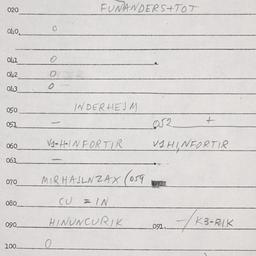 020 FUNANDERSTTOT
040 0
041 0
042 0
043 0
050 INDERHEJM
051 — 052 +
060 V1HINFORTIR V1HINFORTIR
061 —
070 MIRHAJLNZAX (059
080 CU = IN
090 HINUNCURIK 091. —/K3-RIK
100 0